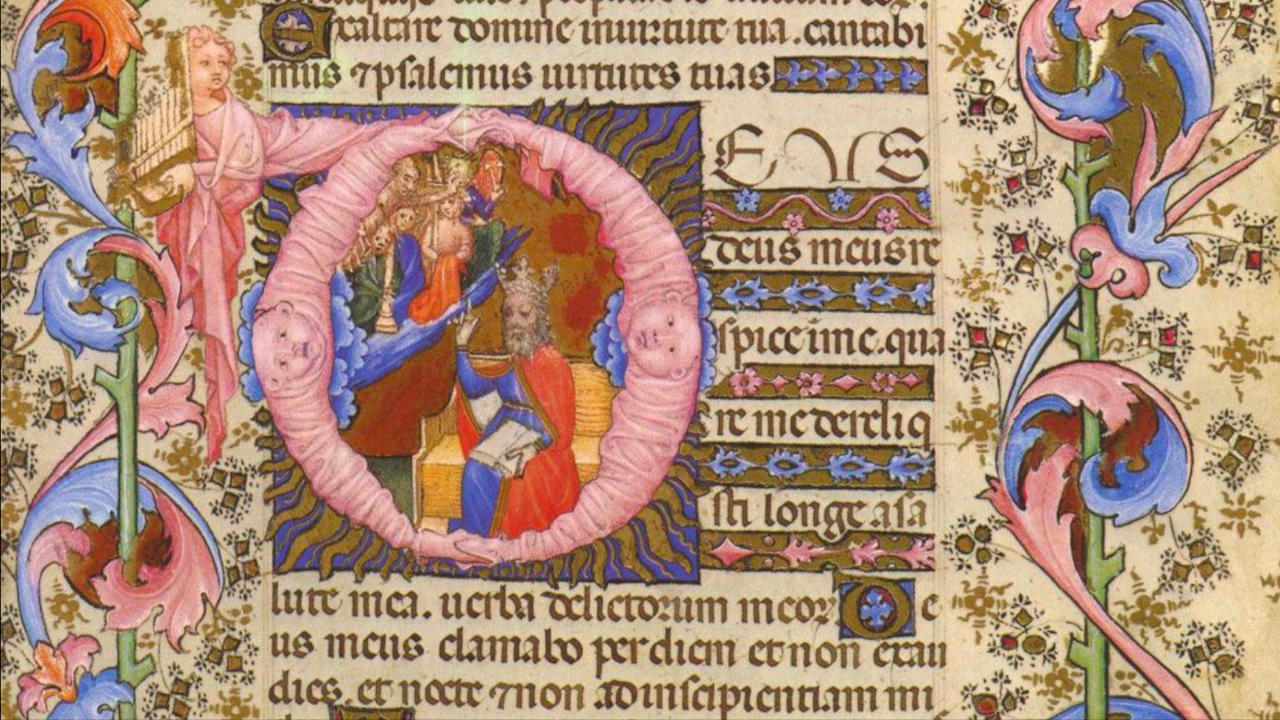 Exaltare domine inuirtute tua .cantabi
mus ⁊psalemus uirtutes tuas
DEVS
deus meus re
spice ime.qua
re me dereliq
sti longe asa
lute mea. uerba delictorum meor De
us meus clamabo per diem et non exau
dies et nocte ⁊non adinscipientiam mi